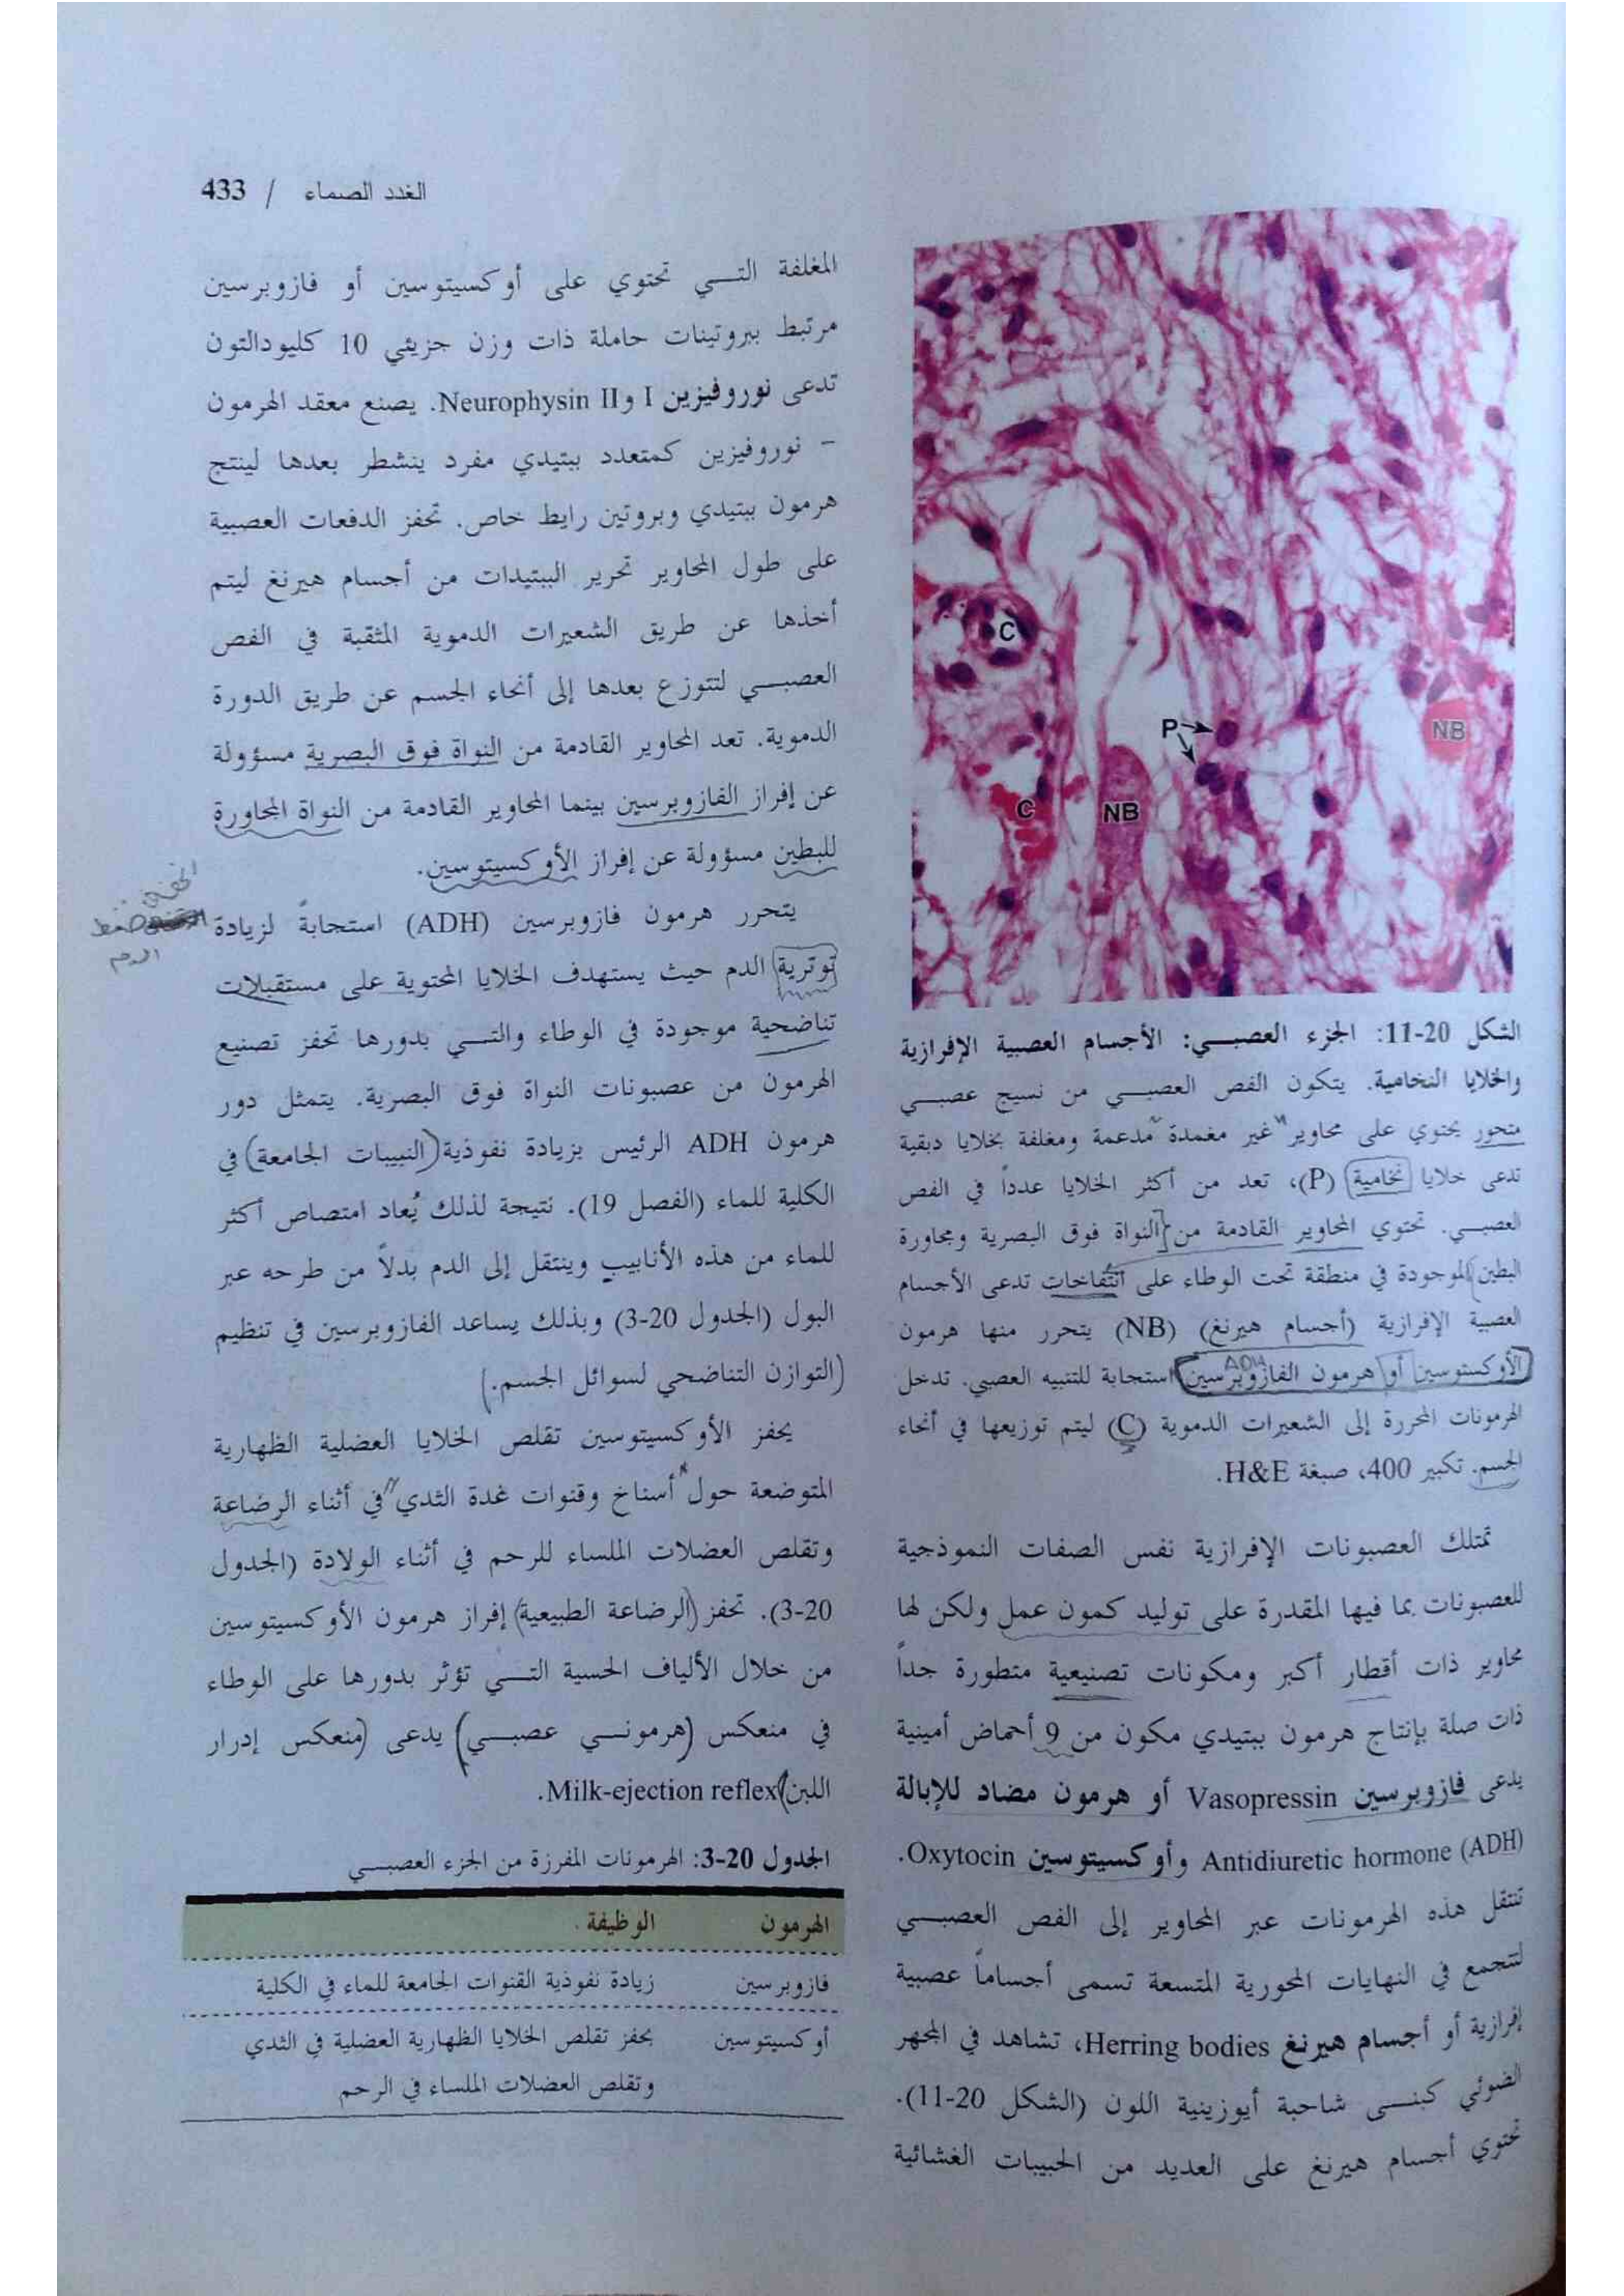 الغدد الصماء / 433
C
P
NB
C
NB
الشكل 20-11: الجزء العصبـي: الأجسام العصبية الإفرازية
والخلايا النخامية. يتكون الفص العصبـي من نسيج عصبـي
متحور يحتوي على محاوير غير مغمدة مدعمة ومغلفة بخلايا دبقية
تدعى خلايا نخامية (P)، تعد من أكثر الخلايا عدداً في الفص
العصبـي. تحتوي المحاوير القادمة من النواة فوق البصرية ومجاورة
البطين الموجودة في منطقة تحت الوطاء على انتفاخات تدعى الأجسام
العصبية الإفرازية (أجسام هيرنغ) (NB) يتحرر منها هرمون
ADH
الأوكستوسين أو هرمون الفازوبرسين استجابة للتنبيه العصبي. تدخل
الهرمونات المحررة إلى الشعيرات الدموية (C) ليتم توزيعها في أنحاء
الجسم. تكبير 400، صبغة H&E.
تمتلك العصبونات الإفرازية نفس الصفات النموذجية
للعصبونات بما فيها المقدرة على توليد كمون عمل ولكن لها
محاوير ذات أقطار أكبر ومكونات تصنيعية متطورة جداً
ذات صلة بإنتاج هرمون ببتيدي مكون من 9 أحماض أمينية
يدعى فازوبرسين Vasopressin أو هرمون مضاد للإبالة
Antidiuretic hormone (ADH) وأوكسيتوسين Oxytocin.
تنتقل هذه الهرمونات عبر المحاوير إلى الفص العصبـي
لتتجمع في النهايات المحورية المتسعة تسمى أجساماً عصبية
إفرازية أو أجسام هيرنغ Herring bodies، تشاهد في المجهر
الضوئي كبنـى شاحبة أيوزينية اللون (الشكل 20-11).
تحتوي أجسام هيرنغ على العديد من الحبيبات الغشائية
المغلفة التـي تحتوي على أوكسيتوسين أو فازوبرسين
مرتبط ببروتينات حاملة ذات وزن جزيئي 10 كليودالتون
تدعى نوروفيزين I وNeurophysin II. يصنع معقد الهرمون
- نوروفيزين كمتعدد ببتيدي مفرد ينشطر بعدها لينتج
هرمون ببتيدي وبروتين رابط خاص. تحفز الدفعات العصبية
على طول المحاوير تحرير الببتيدات من أجسام هيرنغ ليتم
أخذها عن طريق الشعيرات الدموية المثقبة في الفص
العصبـي لتتوزع بعدها إلى أنحاء الجسم عن طريق الدورة
الدموية. تعد المحاوير القادمة من النواة فوق البصرية مسؤولة
عن إفراز الفازوبرسين بينما المحاوير القادمة من النواة المجاورة
للبطين مسؤولة عن إفراز الأوكسيتوسين.
يتحرر هرمون فازوبرسين (ADH) استجابةً لزيادة
ضغط
الدم
توترية الدم حيث يستهدف الخلايا المحتوية على مستقبلات
تناضحية موجودة في الوطاء والتـي بدورها تحفز تصنيع
الهرمون من عصبونات النواة فوق البصرية. يتمثل دور
هرمون ADH الرئيس بزيادة نفوذية (النبيبات الجامعة) في
الكلية للماء (الفصل 19). نتيجة لذلك يُعاد امتصاص أكثر
للماء من هذه الأنابيب وينتقل إلى الدم بدلاً من طرحه عبر
البول (الجدول 20-3) وبذلك يساعد الفازوبرسين في تنظيم
(التوازن التناضحي لسوائل الجسم.)
يحفز الأوكسيتوسين تقلص الخلايا العضلية الظهارية
المتوضعة حول أسناخ وقنوات غدة الثدي في أثناء الرضاعة
وتقلص العضلات الملساء للرحم في أثناء الولادة (الجدول
20-3). تحفز (الرضاعة الطبيعية) إفراز هرمون الأوكسيتوسين
من خلال الألياف الحسية التـي تؤثر بدورها على الوطاء
في منعكس (هرمونـي عصبـي) يدعى (منعكس إدرار
اللبن) Milk-ejection reflex.
الجدول 20-3: الهرمونات المفرزة من الجزء العصبـي
الهرمون الوظيفة
فازوبرسين زيادة نفوذية القنوات الجامعة للماء في الكلية
أوكسيتوسين يحفز تقلص الخلايا الظهارية العضلية في الثدي
وتقلص العضلات الملساء في الرحم